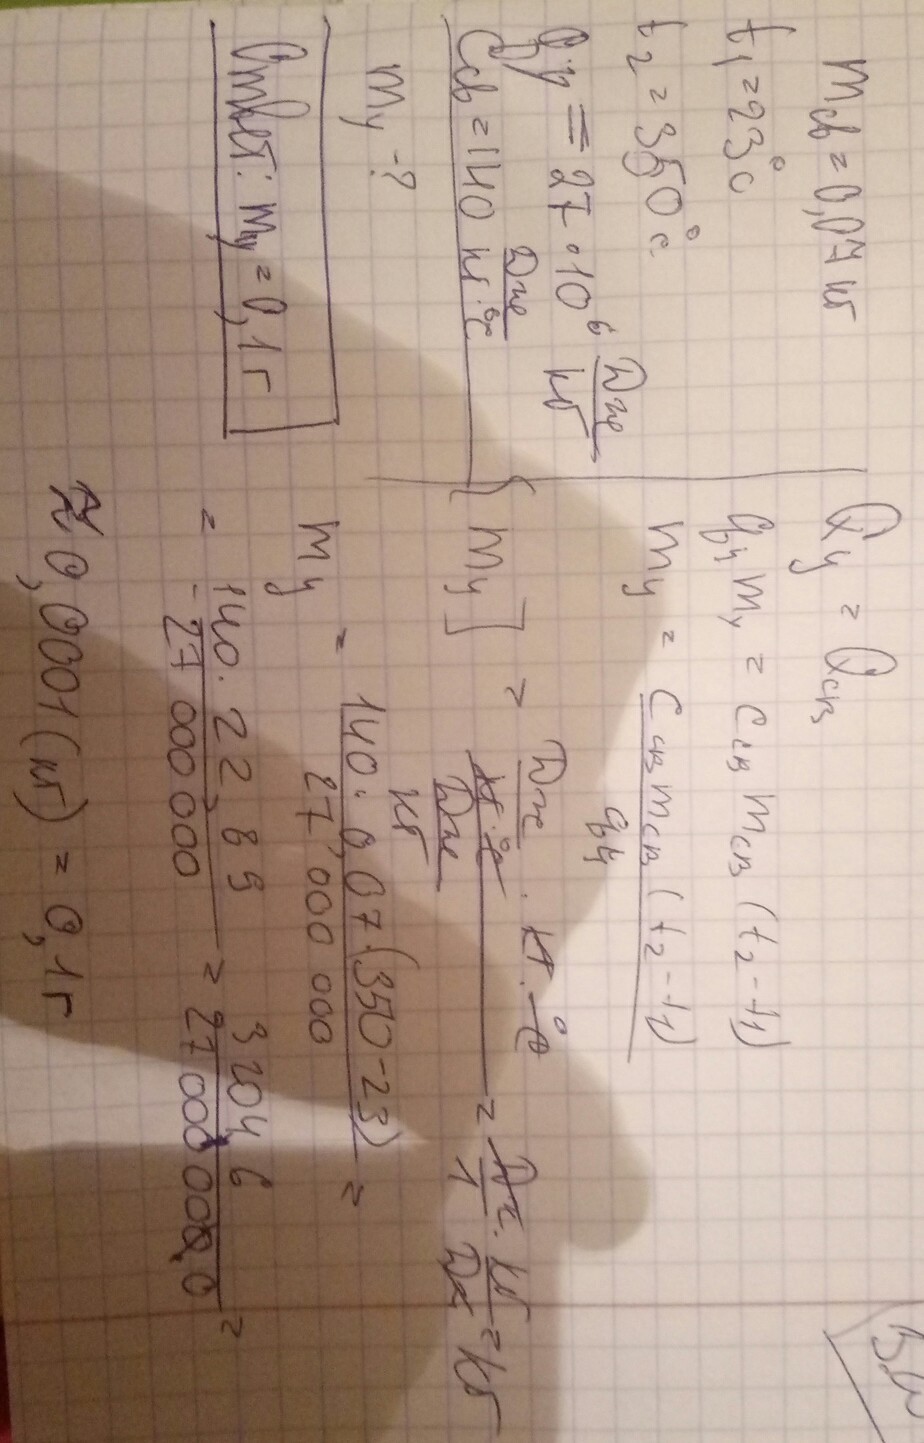 m св = 0,07 кг
t₁ = 23°С
t₂ = 350°С
q у = 27 · 10⁶ Дж/кг
Cсв = 140 Дж/кг·°С
mу - ?
Ответ: mу = 0,1 г
Qу = Qсв
qу mу = cсв mсв (t₂ - t₁)
mу = cсв mсв (t₂ - t₁) / qу
[mу] = Дж/кг·°С · кг · °С / Дж/кг = Дж/1 · кг/Дж = кг
mу = 140 · 0,07 · (350 - 23) / 27 000 000 =
= 140 · 22,89 / 27 000 000 = 3204,6 / 27 000 000,0 =
≈ 0,0001 (кг) = 0,1 г